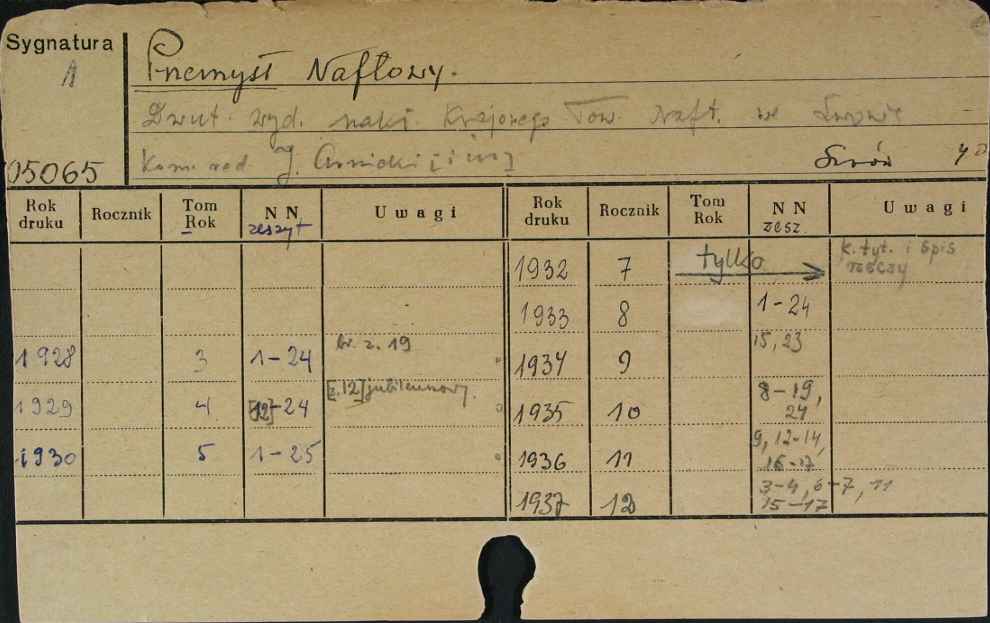 Sygnatura
A
05065
Przemysł Naftowy.
Dwut. wyd. nakł. Krajowego Tow. Naft. w Lwowie
Kom. red. J. [i in.]
Lwów 4°
Rok druku Rocznik Tom Rok NN zeszyt Uwagi
1928 3 1-24 br. z. 19
1929 4 [12]-24 [z. 12] jubileuszowy.
1930 5 1-25
Rok druku Rocznik Tom Rok NN zesz. Uwagi
1932 7 tylko k. tyt. i spis rzeczy
1933 8 1-24
1934 9 15, 23
1935 10 8-19, 24
1936 11 9, 12-14, 16-17
1937 12 3-4, 6-7, 11 15-17